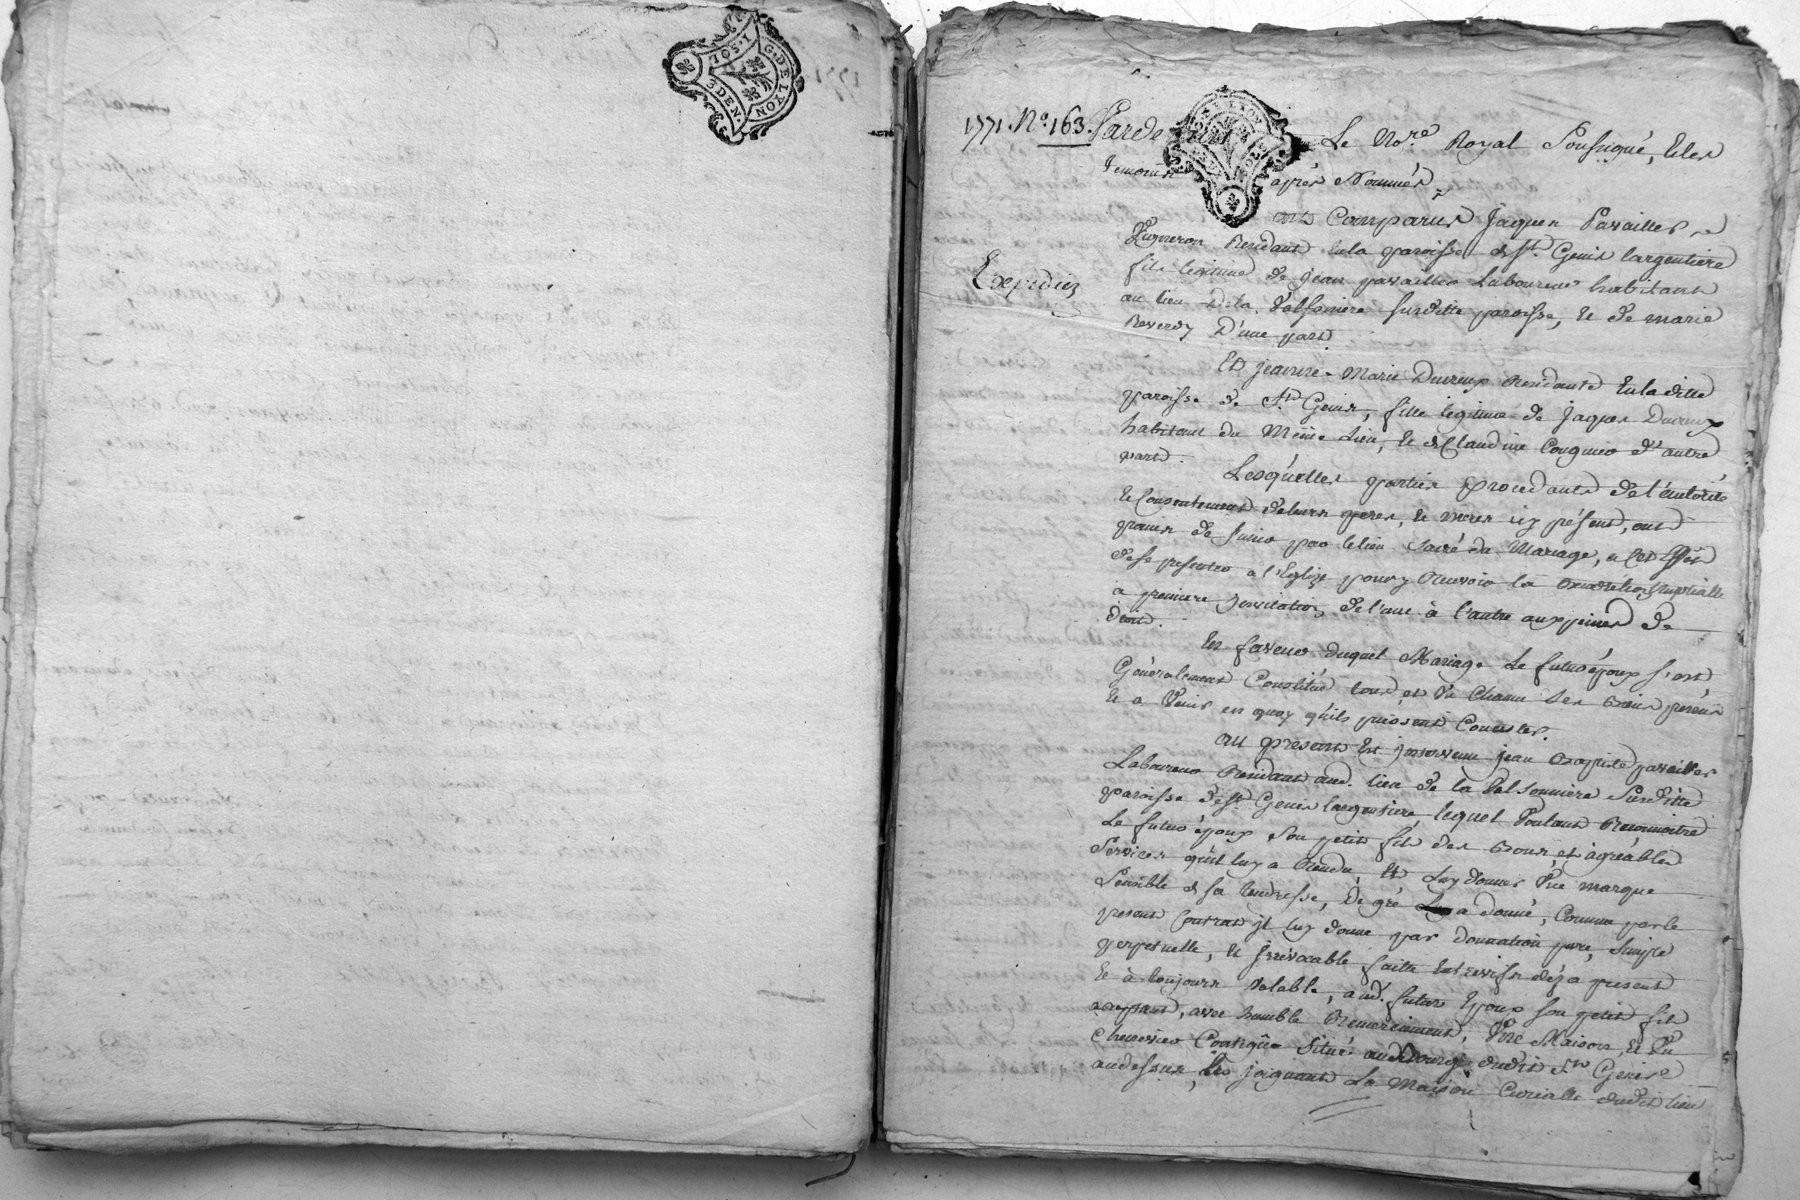 G. DE LYON
10S. 1
3 DEN.
1771. No. 163. Pardevant Le No.re Royal Soussigné, Et les
Temoins après Nommés,
ont Comparus Jaques Pavailler
Vigneron Residant En la paroisse de St. Genis largentiere
fils legitime de Jean pavailler Laboureur habitant
au lieu De la Valsoniere Susditte paroisse, Et de marie
Reverdy D'une part.
Expediez
Et Jeanne-Marie Ducreux Residante En la ditte
paroisse de St. Genis, fille legitime de Jaques Ducreux
habitant du Même Lieu, Et de Claudine d'autre
part.
Lesquelles parties procedants de l'autorité
Et Consentement de leurs peres, Et meres icy présent, ont
promis de S'unir par le lien Sacré du Mariage, a Cet Effet
de se presenter a l'Eglize pour y Recevoir la Benediction Nuptialle
a premiere Invitation de l'une à l'autre aux peines de
droit.
En faveur duquel Mariage Le futur époux s'est
Généralement Constitué tous et Un Chacun Ses Biens présens
Et a Venir en quoy qu'ils puissent Consister.
au present Est Intervenu Jean Baptiste pavailler
Laboureur Residant aud. lieu de la Valsonniere Susditte
paroisse de St. Genis largentiere, lequel Voulant Reconnoitre
Le futur époux Son petit fils des Bons et agréables
Services qu'il luy a Rendu, Et Luy donner Une marque
Sensible de sa tendresse, De gré a donné, Comme par le
present Contrat il luy donne par donnation pure, Simple
perpetuelle, Et Irrévocable faite Entrevifs déja present
Et à toujours Valable, aud. futur Epoux Son petit fils
acceptant, avec humble Remerciement, Une Maison, Et Un
Chenevier Contigüe Situé au Bourg dudit St. Genis
au dessus, joignant La Maison Curialle dudit lieu